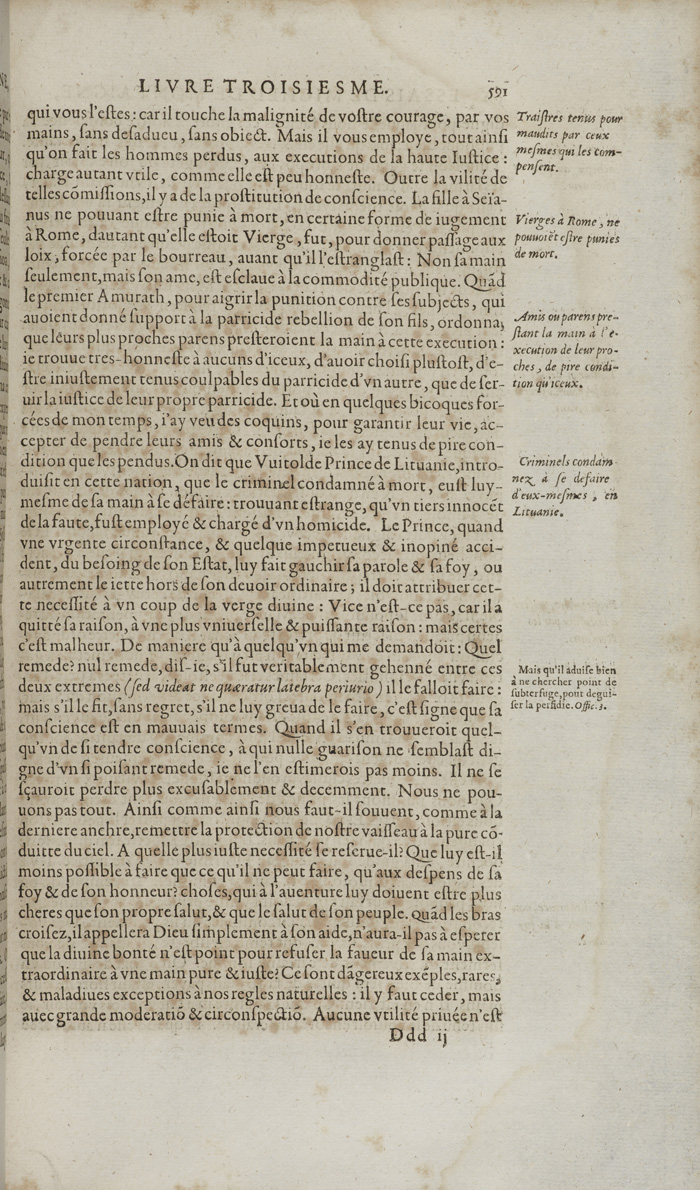 LIVRE TROISIESME. 591
qui vous l'eſtes: car il touche la malignité de voſtre courage, par vos
mains, ſans deſadueu, ſans obiect. Mais il vous employe, tout ainſi
qu'on fait les hommes perdus, aux executions de la haute Iuſtice:
charge autant vtile, comme elle eſt peu honneſte. Outre la vilité de
telles cõmiſſions, il y a de la proſtitution de conſcience. La fille à Seïa-
nus ne pouuant eſtre punie à mort, en certaine forme de iugement
à Rome, dautant qu'elle eſtoit Vierge, fut, pour donner paſſage aux
loix, forcée par le bourreau, auant qu'il l'eſtranglaſt: Non ſa main
ſeulement, mais ſon ame, eſt eſclaue à la commodité publique. Quãd
le premier Amurath, pour aigrir la punition contre ſes ſubjects, qui
auoient donné ſupport à la parricide rebellion de ſon fils, ordonna,
que leurs plus proches parens preſteroient la main à cette execution:
ie trouue tres-honneſte à aucuns d'iceux, d'auoir choiſi pluſtoſt, d'e-
ſtre iniuſtement tenus coulpables du parricide d'vn autre, que de ſer-
uir la iuſtice de leur propre parricide. Et où en quelques bicoques for-
cées de mon temps, i'ay veu des coquins, pour garantir leur vie, ac-
cepter de pendre leurs amis & conſorts, ie les ay tenus de pire con-
dition que les pendus. On dit que Vuitolde Prince de Lituanie, intro-
duiſit en cette nation, que le criminel condamné à mort, euſt luy-
meſme de ſa main à ſe défaire: trouuant eſtrange, qu'vn tiers innocẽt
de la faute, fuſt employé & chargé d'vn homicide. Le Prince, quand
vne vrgente circonſtance, & quelque impetueux & inopiné acci-
dent, du beſoing de ſon Eſtat, luy fait gauchir ſa parole & ſa foy, ou
autrement le iette hors de ſon deuoir ordinaire; il doit attribuer cet-
te neceſſité à vn coup de la verge diuine: Vice n'eſt-ce pas, car il a
quitté ſa raiſon, à vne plus vniuerſelle & puiſſante raiſon: mais certes
c'eſt malheur. De maniere qu'à quelqu'vn qui me demandoit: Quel
remede? nul remede, diſ-ie, s'il fut veritablement gehenné entre ces
deux extremes (ſed videat ne quæratur latebra periurio) il le falloit faire:
mais s'il le fit, ſans regret, s'il ne luy greua de le faire, c'eſt ſigne que ſa
conſcience eſt en mauuais termes. Quand il s'en trouueroit quel-
qu'vn de ſi tendre conſcience, à qui nulle guariſon ne ſemblaſt di-
gne d'vn ſi poiſant remede, ie ne l'en eſtimerois pas moins. Il ne ſe
ſçauroit perdre plus excuſablement & decemment. Nous ne pou-
uons pas tout. Ainſi comme ainſi nous faut-il ſouuent, comme à la
derniere anchre, remettre la protection de noſtre vaiſſeau à la pure cõ-
duitte du ciel. A quelle plus iuſte neceſſité ſe reſerue-il? Que luy eſt-il
moins poſſible à faire que ce qu'il ne peut faire, qu'aux deſpens de ſa
foy & de ſon honneur? choſes, qui à l'auenture luy doiuent eſtre plus
cheres que ſon propre ſalut, & que le ſalut de ſon peuple. Quãd les bras
croiſez, il appellera Dieu ſimplement à ſon aide, n'aura-il pas à eſperer
que la diuine bonté n'eſt point pour refuſer la faueur de ſa main ex-
traordinaire à vne main pure & iuſte? Ce ſont dãgereux exẽples, rares,
& maladiues exceptions à nos regles naturelles: il y faut ceder, mais
auec grande moderatiõ & circonſpectiõ. Aucune vtilité priuée n'eſt
Ddd ij
Traiſtres tenus pour
maudits par ceux
meſmes qui les com-
penſent.
Vierges à Rome, ne
pouuoiẽt eſtre punies
de mort.
Amis ou parens pre-
ſtant la main à l'e-
xecution de leur pro-
ches, de pire condi-
tion qu'iceux.
Criminels condam
nez à ſe defaire
d'eux-meſmes, en
Lituanie.
Mais qu'il aduiſe bien
à ne chercher point de
ſubterfuge, pour degui-
ſer la perfidie. Offic. 3.